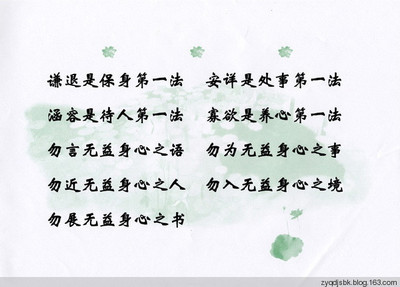 谦退是保身第一法 安详是处事第一法
涵容是待人第一法 寡欲是养心第一法
勿言无益身心之语 勿为无益身心之事
勿近无益身心之人 勿入无益身心之境
勿展无益身心之书
zyqdjsbk.blog.163.com